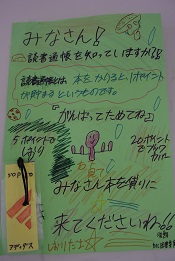 みなさん!
読書通帳を知っていますか?
読書通帳とは、本をかりると、1ポイント
が貯まるというものです。
「がんばってためてね」
5ポイントで
しおり
20ポイントで
ブック
カバー
見て
みなさん本を借りに
来てくださいね
アディダス